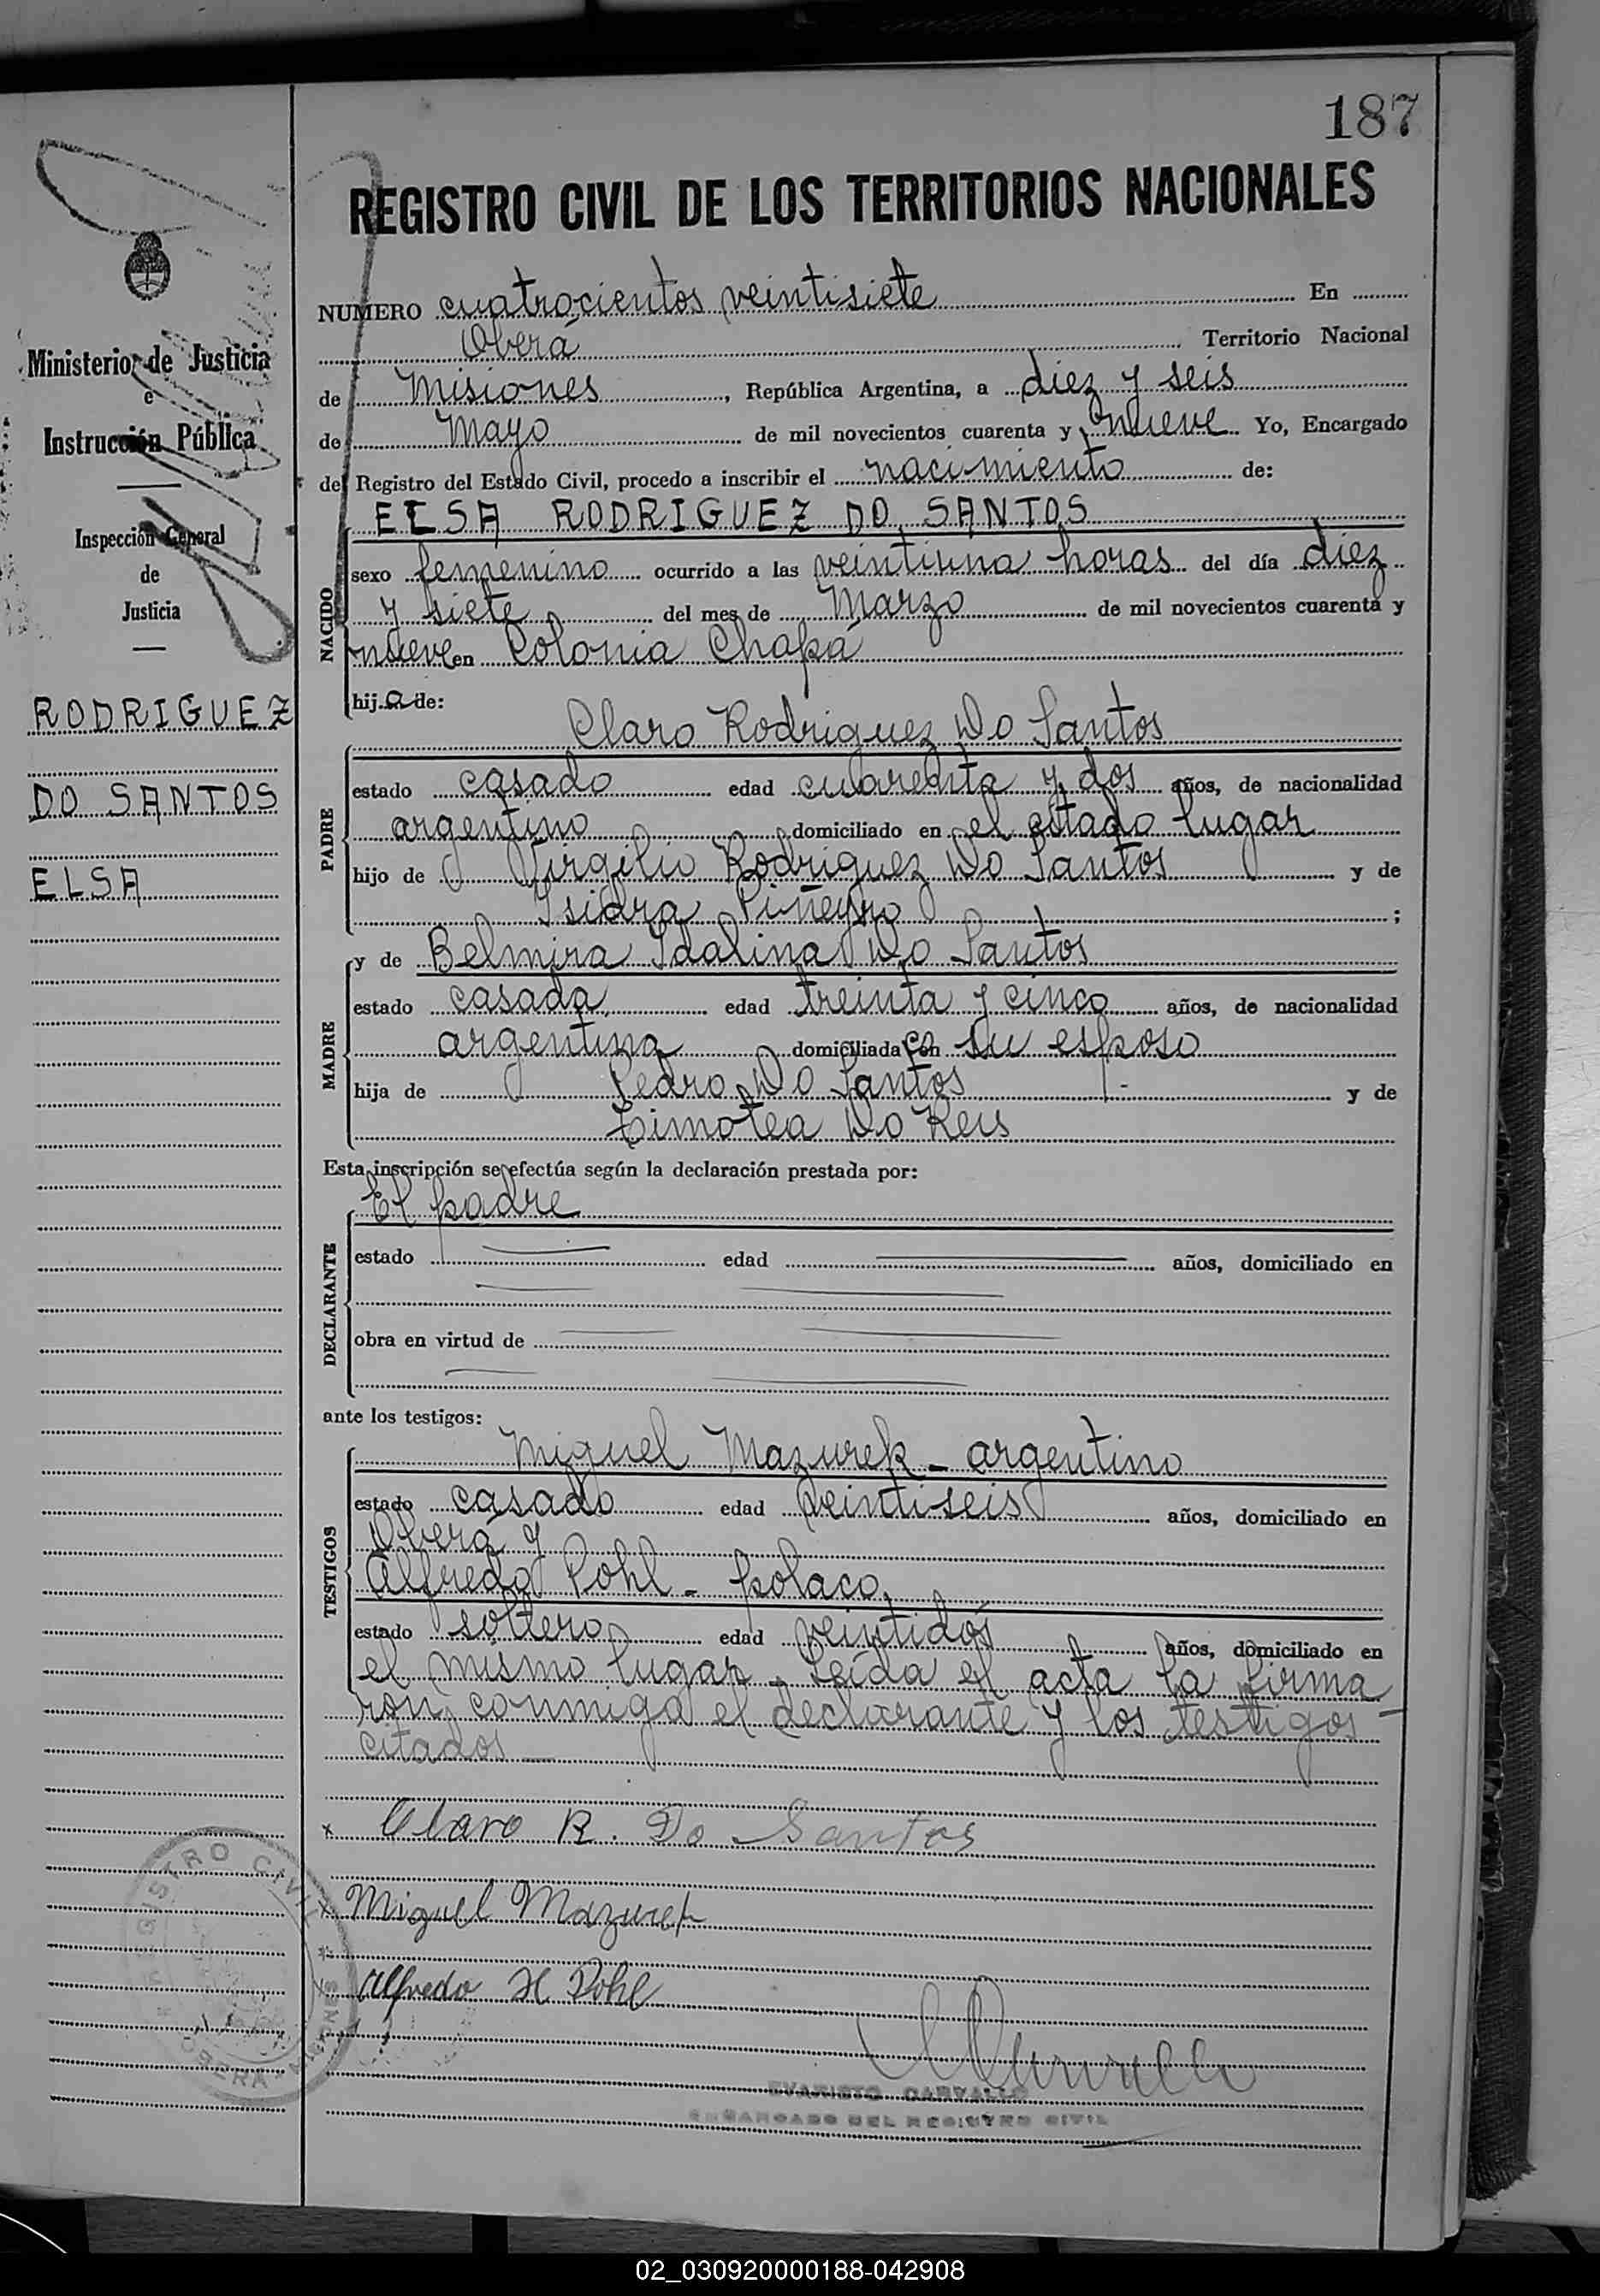 187
REGISTRO CIVIL DE LOS TERRITORIOS NACIONALES
Ministerio de Justicia
e
Instrucción Pública
Inspección General
de
Justicia
RODRIGUEZ
DO SANTOS
ELSA
NUMERO cuatrocientos veintisiete En
Oberá Territorio Nacional
de Misiones, República Argentina, a diez y seis
de Mayo de mil novecientos cuarenta y nueve Yo, Encargado
del Registro del Estado Civil, procedo a inscribir el nacimiento de:
NACIDO
ELSA RODRIGUEZ DO SANTOS
sexo femenino ocurrido a las veintiuna horas del día diez
y siete del mes de Marzo de mil novecientos cuarenta y
nueve en Colonia Chapá
hija de:
PADRE
Claro Rodriguez Do Santos
estado casado edad cuarenta y dos años, de nacionalidad
argentino domiciliado en el citado lugar
hijo de Virgilio Rodriguez Do Santos y de
Isidra Piñeyro ;
MADRE
y de Belmira Idalina Do Santos
estado casada edad treinta y cinco años, de nacionalidad
argentina domiciliada con su esposo
hija de Pedro Do Santos y de
Timotea Do Reis
Esta inscripción se efectúa según la declaración prestada por:
DECLARANTE
El padre
estado edad años, domiciliado en
obra en virtud de
ante los testigos:
TESTIGOS
Miguel Mazurek - argentino
estado casado edad veintiseis años, domiciliado en
Oberá y
Alfredo Pohl - polaco,
estado soltero edad veintidós años, domiciliado en
el mismo lugar. Leída el acta la firma
ron conmigo el declarante y los testigos -
citados —
x Claro R. Do Santos
x Miguel Mazurek
x Alfredo H Pohl
REGISTRO CIVIL
OBERA MISIONES
EVARISTO CARVALLO
ENCARGADO DEL REGISTRO CIVIL
02_030920000188-042908